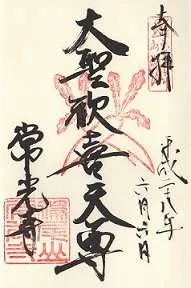 奉拝
平成二十八年
六月六日
大聖歓喜天尊
常光寺